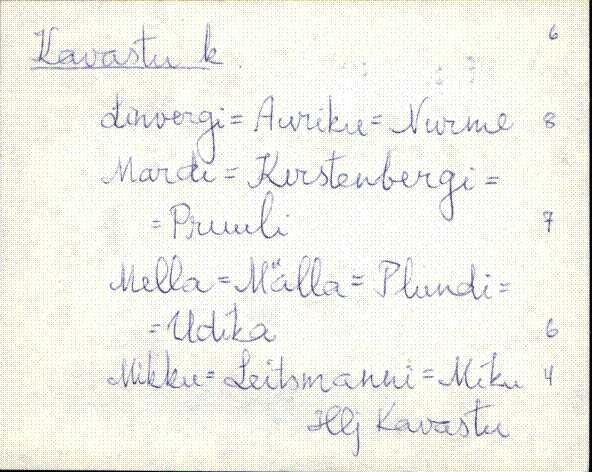 Kavastu k. 6
Linvergi = Auriku = Nurme 8
Mardi = Kirstenbergi =
= Pruuli 7
Mella = Mälla = Plundi =
= Udika 6
Mikku = Leitsmanni = Miku 4
Hlj Kavastu